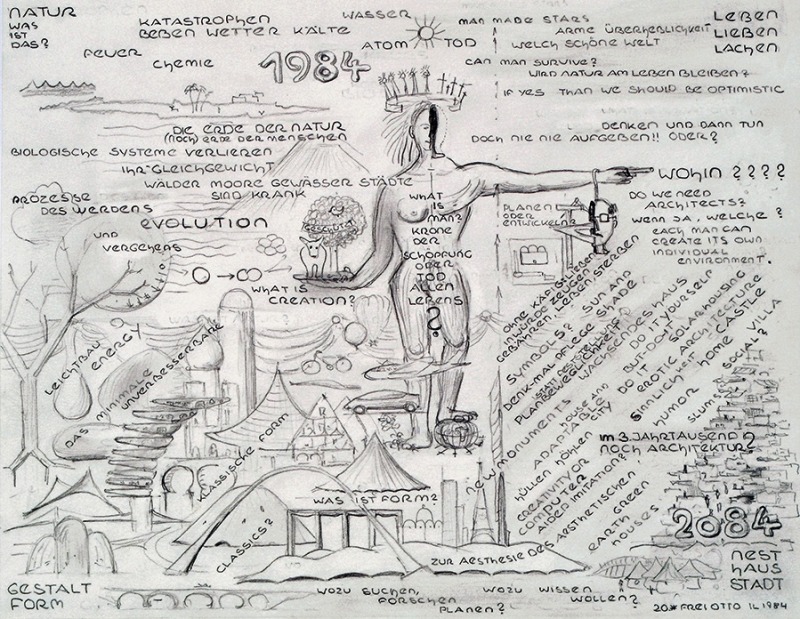 NATUR
WAS
IST
DAS?
KATASTROPHEN
BEBEN WETTER KÄLTE
WASSER
FEUER
CHEMIE
ATOM TOD
1984
MAN MADE STARS
ARME ÜBERHEBLICHKEIT
WELCH SCHÖNE WELT
CAN MAN SURVIVE?
WIRD NATUR AM LEBEN BLEIBEN?
IF YES THAN WE SHOULD BE OPTIMISTIC
LEBEN
LIEBEN
LACHEN
DIE ERDE DER NATUR
(NOCH) ERDE DER MENSCHEN
DENKEN UND DANN TUN
DOCH NIE NIE AUFGEBEN!! ODER?
BIOLOGISCHE SYSTEME VERLIEREN
IHR GLEICHGEWICHT
WÄLDER MOORE GEWÄSSER STÄDTE
SIND KRANK
WOHIN ????
PROZESSE
DES WERDENS
EVOLUTION
UND
VERGEHENS
WHAT IS
CREATION?
WHAT
IS
MAN?
KRONE
DER
SCHÖPFUNG
ODER
TOD
ALLEN
LEBENS
?
PLANEN
ODER
ENTWICKELN?
DO WE NEED
ARCHITECTS?
WENN JA, WELCHE?
EACH MAN CAN
CREATE ITS OWN
INDIVIDUAL
ENVIRONMENT.
LEICHTBAU
ENERGY
DAS MINIMALE
UNVERBESSERBARE
KLASSISCHE FORM
CLASSICS?
WAS IST FORM?
GEBÄHREN LEBEN STERBEN
SYMBOLS? SUN AND
SHADE
DENK-MAL PFLEGE
WACHSENDES HAUS
DO IT YOURSELF
BUT DONT
DO IT
SOLARHOUSING
EROTIC ARCHITECTURE
SINNLICHKEIT
HOME
CASTLE
VILLA
HUMOR
SLUMS
SOCIAL?
NEW MONUMENTS
ADAPTABLE
HOUSE AND
CITY
HÜLLEN HÖHLEN
CREATIVITY OR
COMPUTER
AIDED IMITATION?
IM 3. JAHRTAUSEND
NOCH ARCHITEKTUR?
EARTH GREEN
HOUSES
ZUR AESTHESIE DES AESTHETISCHEN
2084
NEST
HAUS
STADT
GESTALT
FORM
WOZU SUCHEN,
FORSCHEN
PLANEN?
WOZU WISSEN
WOLLEN?
FREI OTTO IL 1984